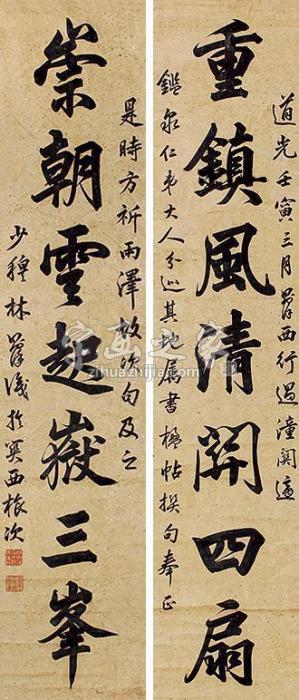 重鎮風清関四扇
道光壬寅三月西行過潼関適
鑑泉仁弟大人分巡其地屬書楹帖撰句奉正
崇朝雲起嶽三峯
是時方祈雨澤故次句及之
少穆林識於西旅次
字画之家
zihuazhijia.com